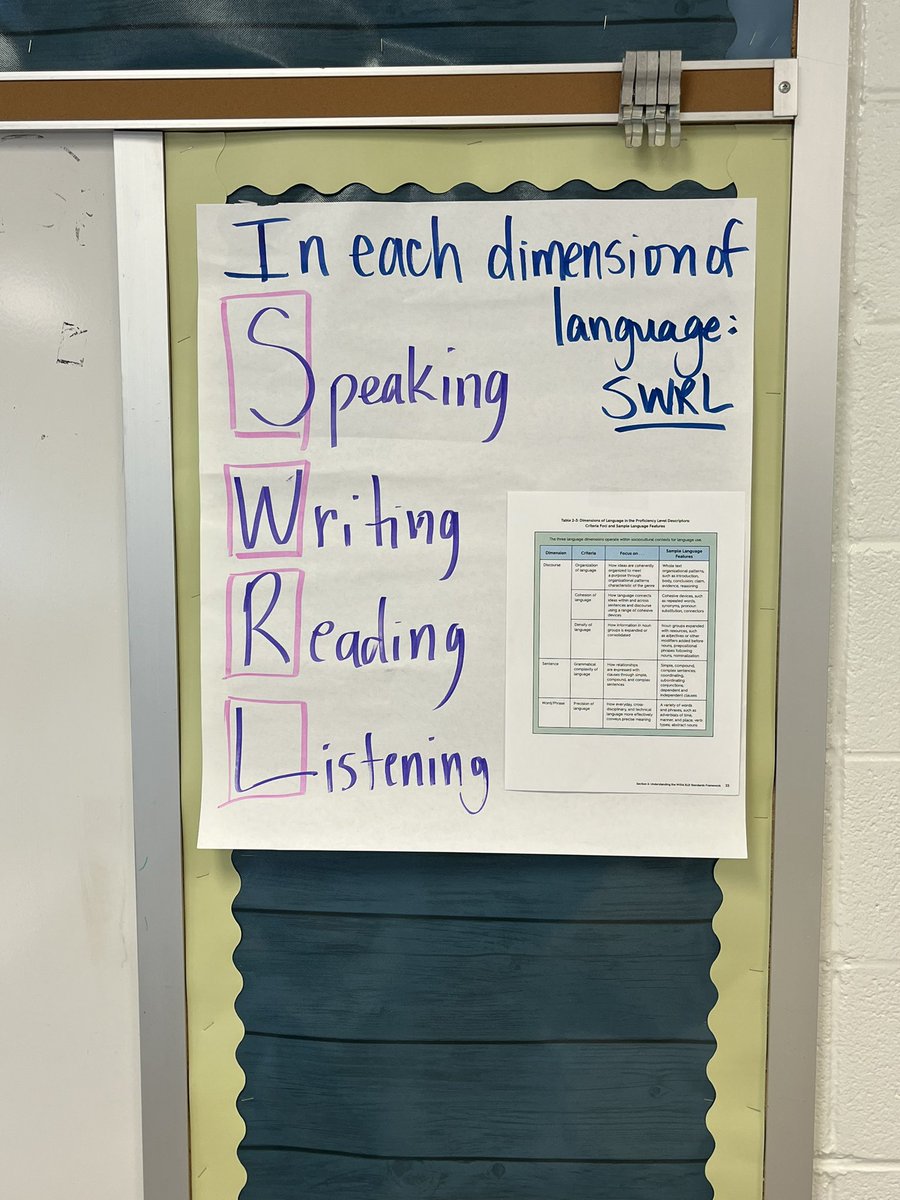 In each dimension of
language:
SWRL
Speaking
Writing
Reading
Listening
Table 2-3: Dimensions of Language in the Proficiency Level Descriptors:
Criteria Foci and Sample Language Features
The three language dimensions operate within sociocultural contexts for language use.
Dimension Criteria Focus on Sample Language
Features
Discourse
Organization
of language
How ideas are coherently
organized to meet
a purpose through
organizational patterns
characteristic of the genre
Whole text
organizational patterns,
such as introduction,
body, conclusion; claim,
evidence, reasoning
Cohesion of
language
How language connects
ideas within and across
sentences and discourse
using a range of cohesive
devices
Cohesive devices, such
as repeated words,
synonyms, pronoun
substitution, connectors
Density of
language
How information in noun
groups is expanded or
consolidated
Noun groups expanded
with resources, such
as adjectives or other
modifiers added before
nouns, prepositional
phrases following
nouns, nominalization
Sentence
Grammatical
complexity of
language
How relationships
are expressed with
clauses through simple,
compound, and complex
sentences
Simple, compound,
complex sentences;
coordinating,
subordinating
conjunctions;
dependent and
independent clauses
Word/Phrase
Precision of
language
How everyday, cross-
disciplinary, and technical
language more effectively
conveys precise meaning
A variety of words
and phrases, such as
adverbials of time,
manner, and place; verb
types; abstract nouns
Section 2: Understanding the WIDA ELD Standards Framework 33